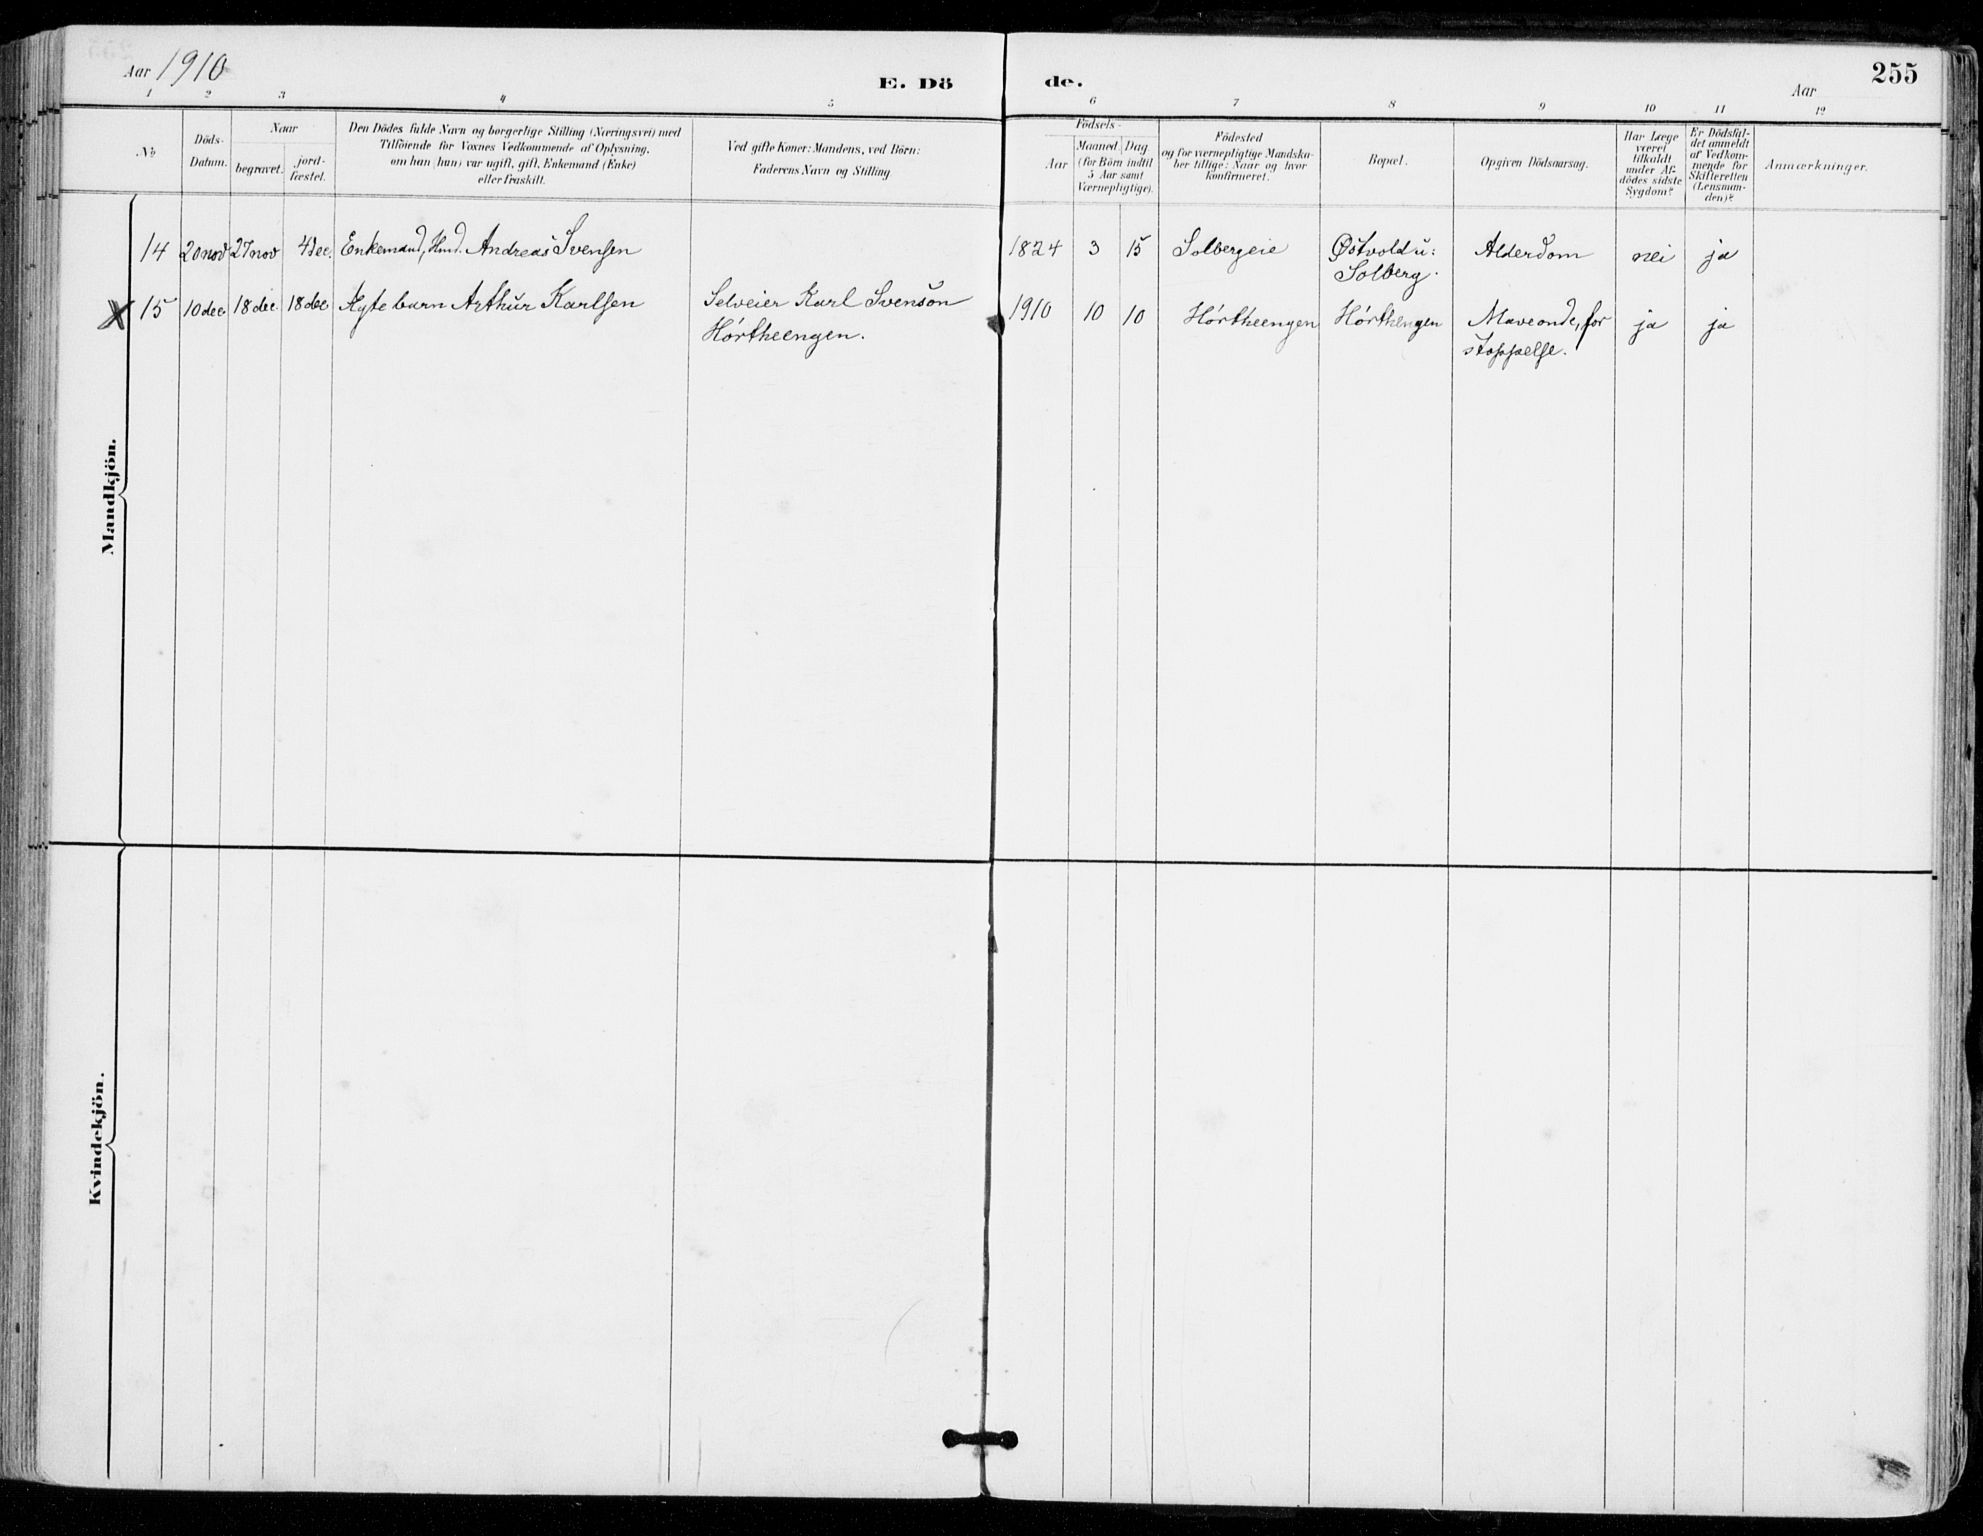 Aar 1910
E. Dö
de.
Aar
255
1 2 3 4 5 6 7 8 9 10 11 12
No
Döds-
Datum.
Naar
begravet.
jord-
fæstet.
Den Dödes fulde Navn og borgerlige Stilling (Næringsvei) med
Tilföiende for Voxnes Vedkommende af Oplysning,
om han (hun) var ugift, gift, Enkemand (Enke)
eller fraskilt.
Ved gifte Koner: Mandens, ved Börn:
Faderens Navn og Stilling.
Födsels-
Aar
Maaned. Dag
(for Börn indtil
5 Aar samt
Værnepligtige).
Födested
og for værnepligtige Mandska-
ber tillige: Naar og hvor
konfirmeret.
Bopæl.
Opgiven Dödsaarsag.
Har Læge
været
tilkaldt
under Af-
dödes sidste
Sygdom?
Er Dödsfal-
det anmeldt
af Vedkom-
mende for
Skifteretten
(Lensman-
den)?
Anmærkninger.
Mandkjön.
14 20 nov 27 nov 4 dec. Enkemand, Hmd. Andreas Svensen 1824 3 15 Solbergeie Østvold u: Alderdom nei ja
Solberg.
X 15 10 dec 18 dec. 18 dec Ægte barn Arthur Karlsen Selveier Karl Svenson 1910 10 10 Hórtheengen Hórthengen Maveonde, for ja ja
Hórtheengen. stoppelse.
Kvindekjön.